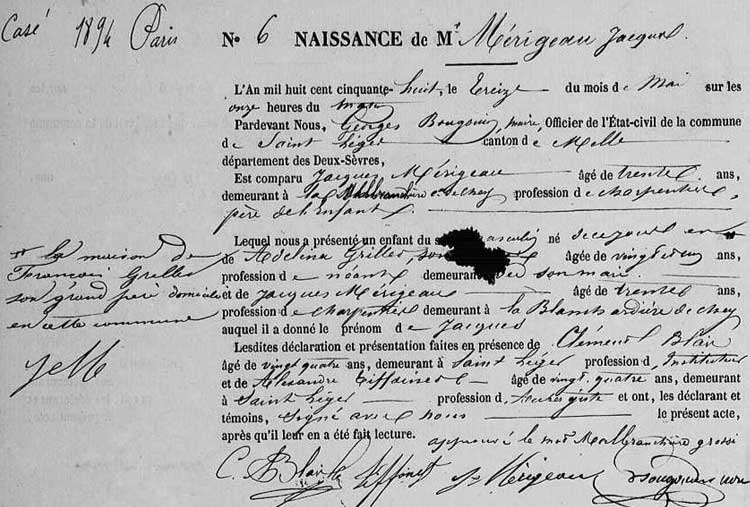 Casé 1894 Paris
N° 6 NAISSANCE de Mr Mérigeau Jacques.
L'An mil huit cent cinquante-huit, le treize du mois de Mai sur les
onze heures du matin
Pardevant Nous, Georges Bougouin, maire, Officier de l'État-civil de la commune
de Saint Léger canton de Melle
département des Deux-Sèvres,
Est comparu Jacques Mérigeau âgé de trente ans,
demeurant à la de Chey profession de charpentier,
père de l'Enfant.
Lequel nous a présenté un enfant du masculin né de ce jour en
de Adelina Grillet âgée de vingt ans,
profession de néant demeurant son mari
et de Jacques Mérigeau âgé de trente ans,
profession de charpentier demeurant à la Blanchardière de Chey
auquel il a donné le prénom de Jacques
* la maison de
François Grillet
son grand père domicilié
en cette commune
Lesdites déclaration et présentation faites en présence de Clément Blau
âgé de vingt quatre ans, demeurant à Saint Léger profession d'Instituteur
et de Alexandre âgé de vingt quatre ans, demeurant
à Saint Léger profession d et ont, les déclarant et
témoins, signé avec nous le présent acte,
après qu'il leur en a été fait lecture.
approuvé le mot
C. Blau J. Mérigeau Bougouin maire